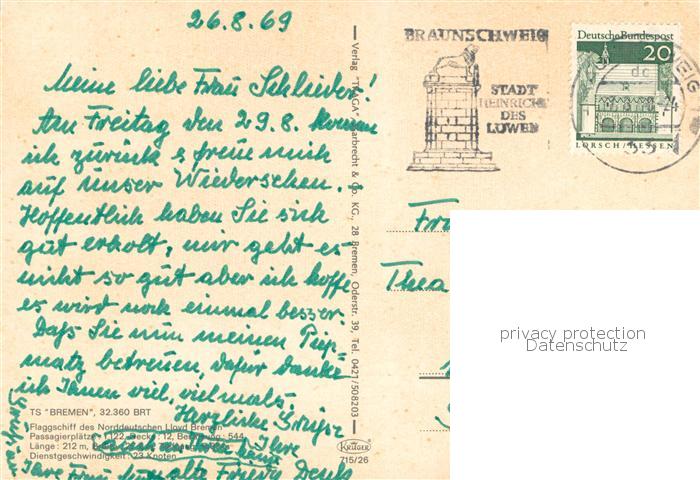 26.8.69
Meine liebe Frau Schlieder!
Am Freitag den 29.8. komme
ich zurück & freue mich
auf unser Wiedersehen.
Hoffentlich haben Sie sich
gut erholt, mir geht es
nicht so gut aber ich hoffe
es wird noch einmal besser.
Daß Sie nun meinen Piep-
matz betreuen, dafür danke
ich Ihnen viel, vielmals.
Herzliche Grüße
Ihre
alte Friedy
Ihre Frau
TS "BREMEN", 32.360 BRT
Flaggschiff des Norddeutschen Lloyd Bremen
Passagierplätze: 1.122, Decks: 12, Besatzung: 544
Länge: 212 m,
Dienstgeschwindigkeit: 23 Knoten
Verlag "TRAGA" Saarbrecht & Co. KG., 28 Bremen, Oderstr. 39, Tel. 0421/508203
KRÜGER
715/26
BRAUNSCHWEIG
STADT
HEINRICHS
DES
LÖWEN
Deutsche Bundespost
20
LORSCH/HESSEN
Fr
Thea
privacy protection
Datenschutz